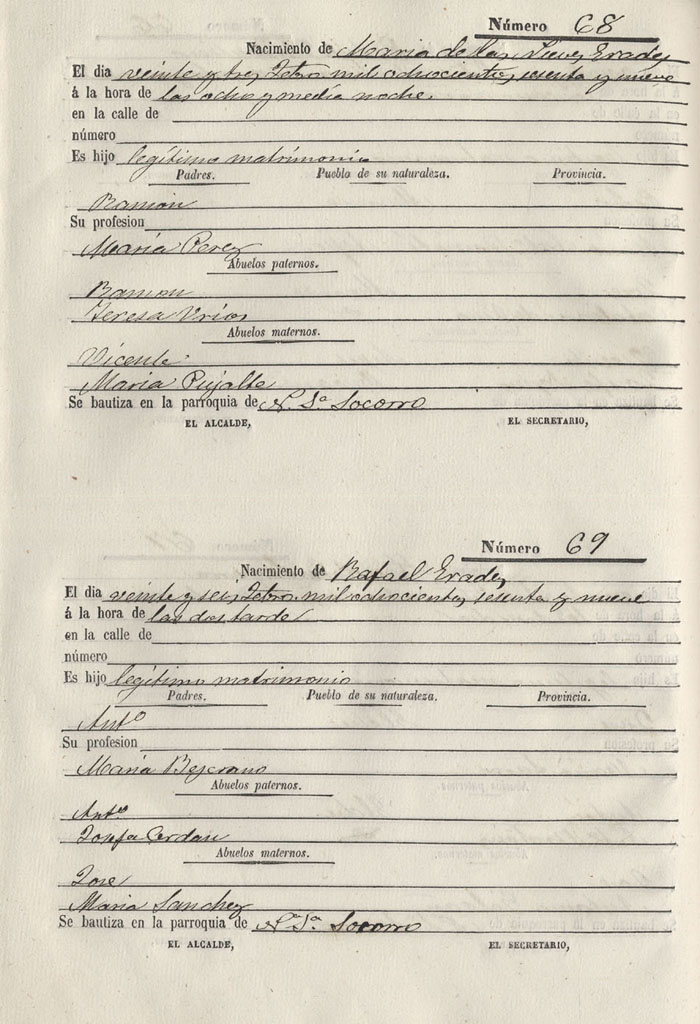 Número 68
Nacimiento de Maria de las Nieves Erades
El dia veinte y tres Febro mil ochocientos sesenta y nueve
á la hora de las ocho y media noche.
en la calle de
número
Es hijo legitimo matrimonio
Padres. Pueblo de su naturaleza. Provincia.
Ramon
Su profesion
Maria Perez
Abuelos paternos.
Ramon
Teresa Vrios
Abuelos maternos.
Vicente
Maria Pujalte
Se bautiza en la parroquia de N. Sª Socorro
EL ALCALDE, EL SECRETARIO,
Número 69
Nacimiento de Rafael Erades
El dia veinte y seis Febro. mil ochocientos sesenta y nueve
á la hora de las dos tarde
en la calle de
número
Es hijo legitimo matrimonio
Padres. Pueblo de su naturaleza. Provincia.
Antº
Su profesion
Maria
Abuelos paternos.
Antº
Josefa Cerdan
Abuelos maternos.
Jose
Maria Sanchez
Se bautiza en la parroquia de Nª Sª Socorro
EL ALCALDE, EL SECRETARIO,